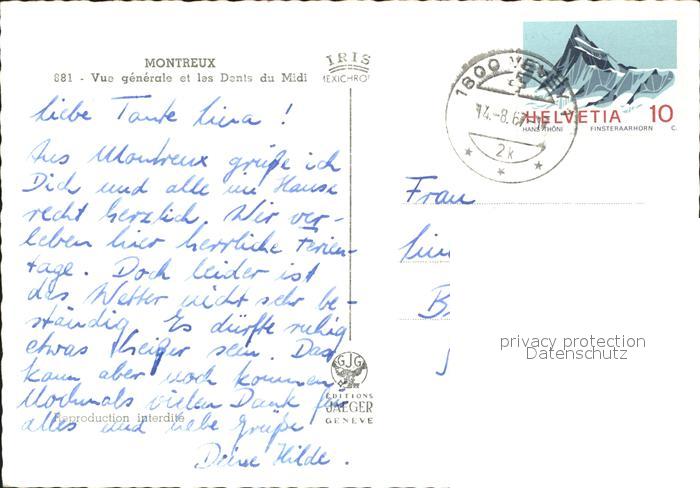 MONTREUX
881 - Vue générale et les Dents du Midi
IRIS
MEXICHROM
Liebe Tante Lina !
Aus Montreux grüße ich
Dich und alle im Hause
recht herzlich. Wir ver-
leben hier herrliche Ferien-
tage. Doch leider ist
das Wetter nicht sehr be-
ständig. Es dürfte ruhig
etwas heißer sein. Das
kann aber noch kommen.
Nochmals vielen Dank für
alles und liebe Grüße
Deine Hilde.
Reproduction interdite
GJG
EDITIONS
JAEGER
GENEVE
1800 VEVEY 1
14.-8.6
2k
HELVETIA 10
HANS THÖNI FINSTERAARHORN C.
Frau
Lin
B
privacy protection
Datenschutz